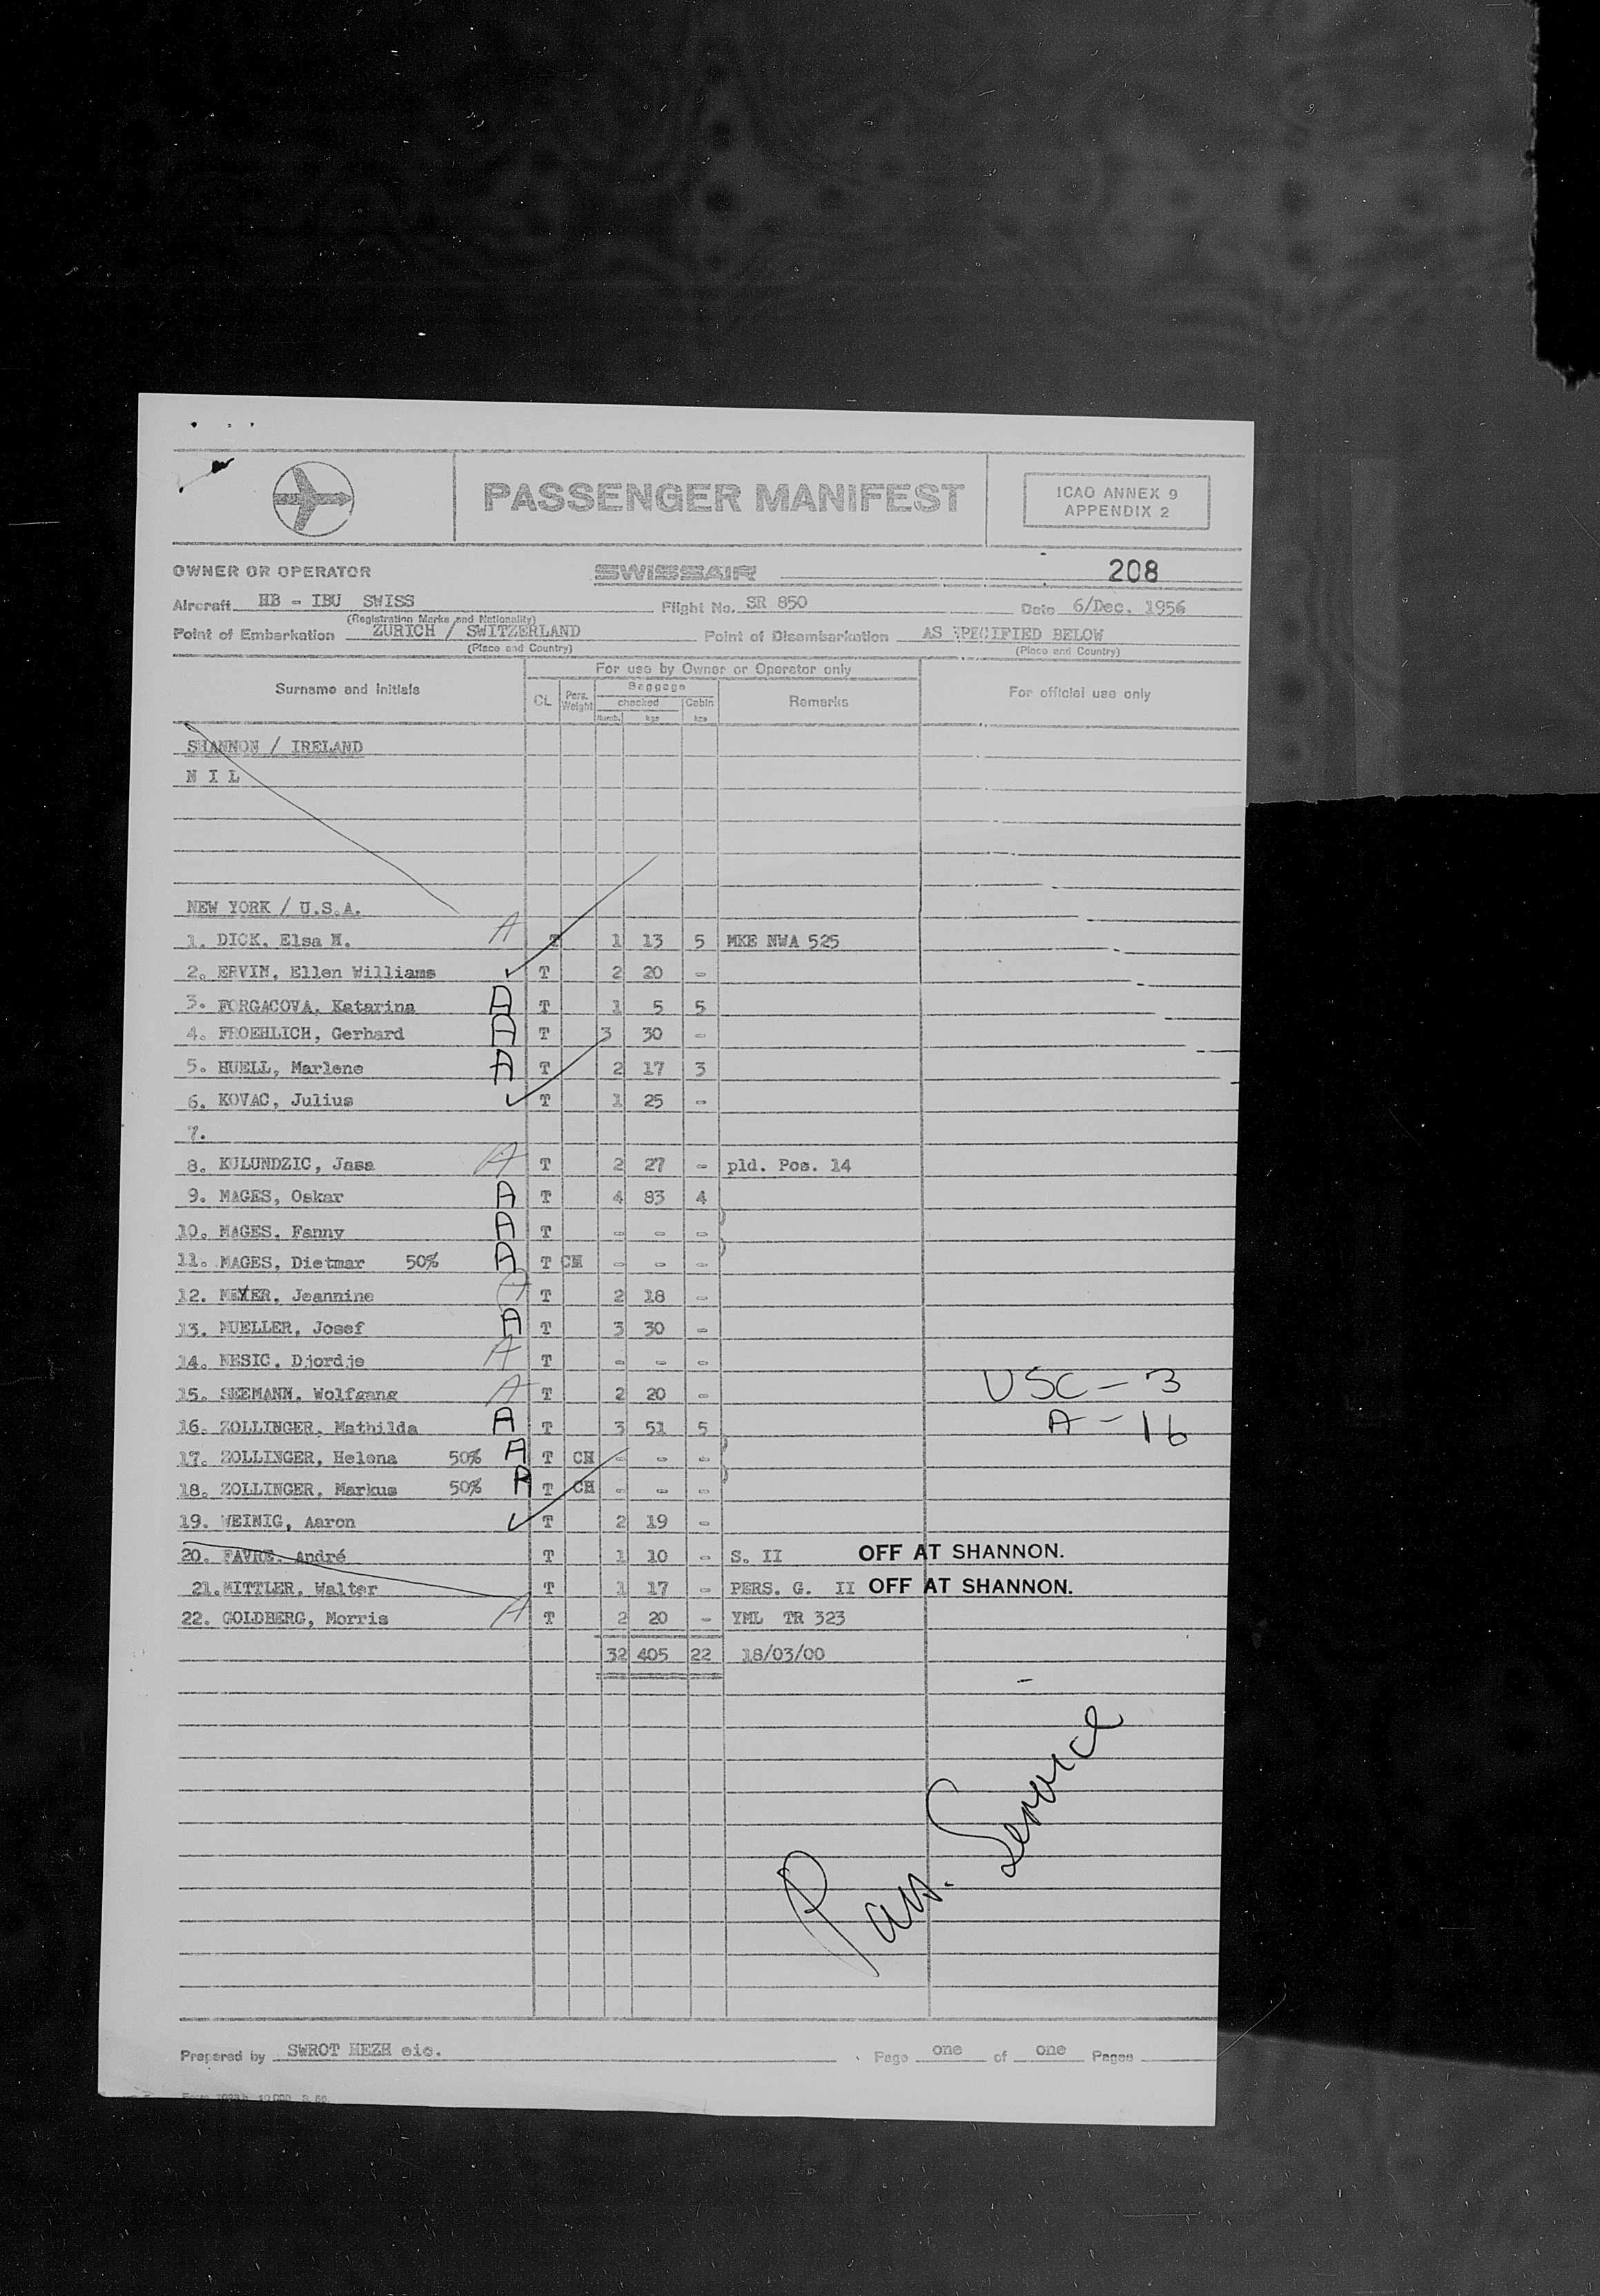 PASSENGER MANIFEST
ICAO ANNEX 9
APPENDIX 2
OWNER OR OPERATOR SWISSAIR 208
Aircraft HB - IBU SWISS Flight No. SR 850 Date 6/Dec. 1956
(Registration Marks and Nationality)
Point of Embarkation ZURICH / SWITZERLAND Point of Disembarkation AS SPECIFIED BELOW
(Place and Country) (Place and Country)
For use by Owner or Operator only
Surname and initials CL Pers. Weight Baggage Remarks For official use only
checked Cabin
Numb. kgs kgs
SHANNON / IRELAND
N I L
NEW YORK / U.S.A.
1. DICK, Elsa H. A T 1 13 5 MKE NWA 525
2. ERVIN, Ellen Williams ✓ T 2 20 -
3. FORGACOVA, Katarina A T 1 5 5
4. FROEHLICH, Gerhard A T 3 30 -
5. HUELL, Marlene A T 2 17 3
6. KOVAC, Julius ✓ T 1 25 -
7.
8. KULUNDZIC, Jasa A T 2 27 - pld. Pos. 14
9. MAGES, Oskar A T 4 83 4
10. MAGES, Fanny A T - - - )
11. MAGES, Dietmar 50% A T CH - - - )
12. MEYER, Jeannine A T 2 18 -
13. MUELLER, Josef A T 3 30 -
14. NESIC, Djordje A T - - -
15. SEEMANN, Wolfgang A T 2 20 - USC - 3
16. ZOLLINGER, Mathilda A T 3 51 5 A - 16
17. ZOLLINGER, Helena 50% A T CH - - - )
18. ZOLLINGER, Markus 50% A T CH - - - )
19. WEINIG, Aaron ✓ T 2 19 -
20. FAVRE, André T 1 10 - S. II OFF AT SHANNON.
21. MITTLER, Walter T 1 17 - PERS. G. II OFF AT SHANNON.
22. GOLDBERG, Morris A T 2 20 - YML TR 323
32 405 22 18/03/00
Pass. Service
Prepared by SWROT HEZH eic. Page one of one Pages